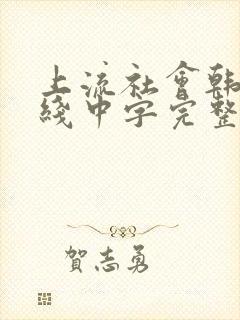 上流社會韩
綫中字完整
贺志勇